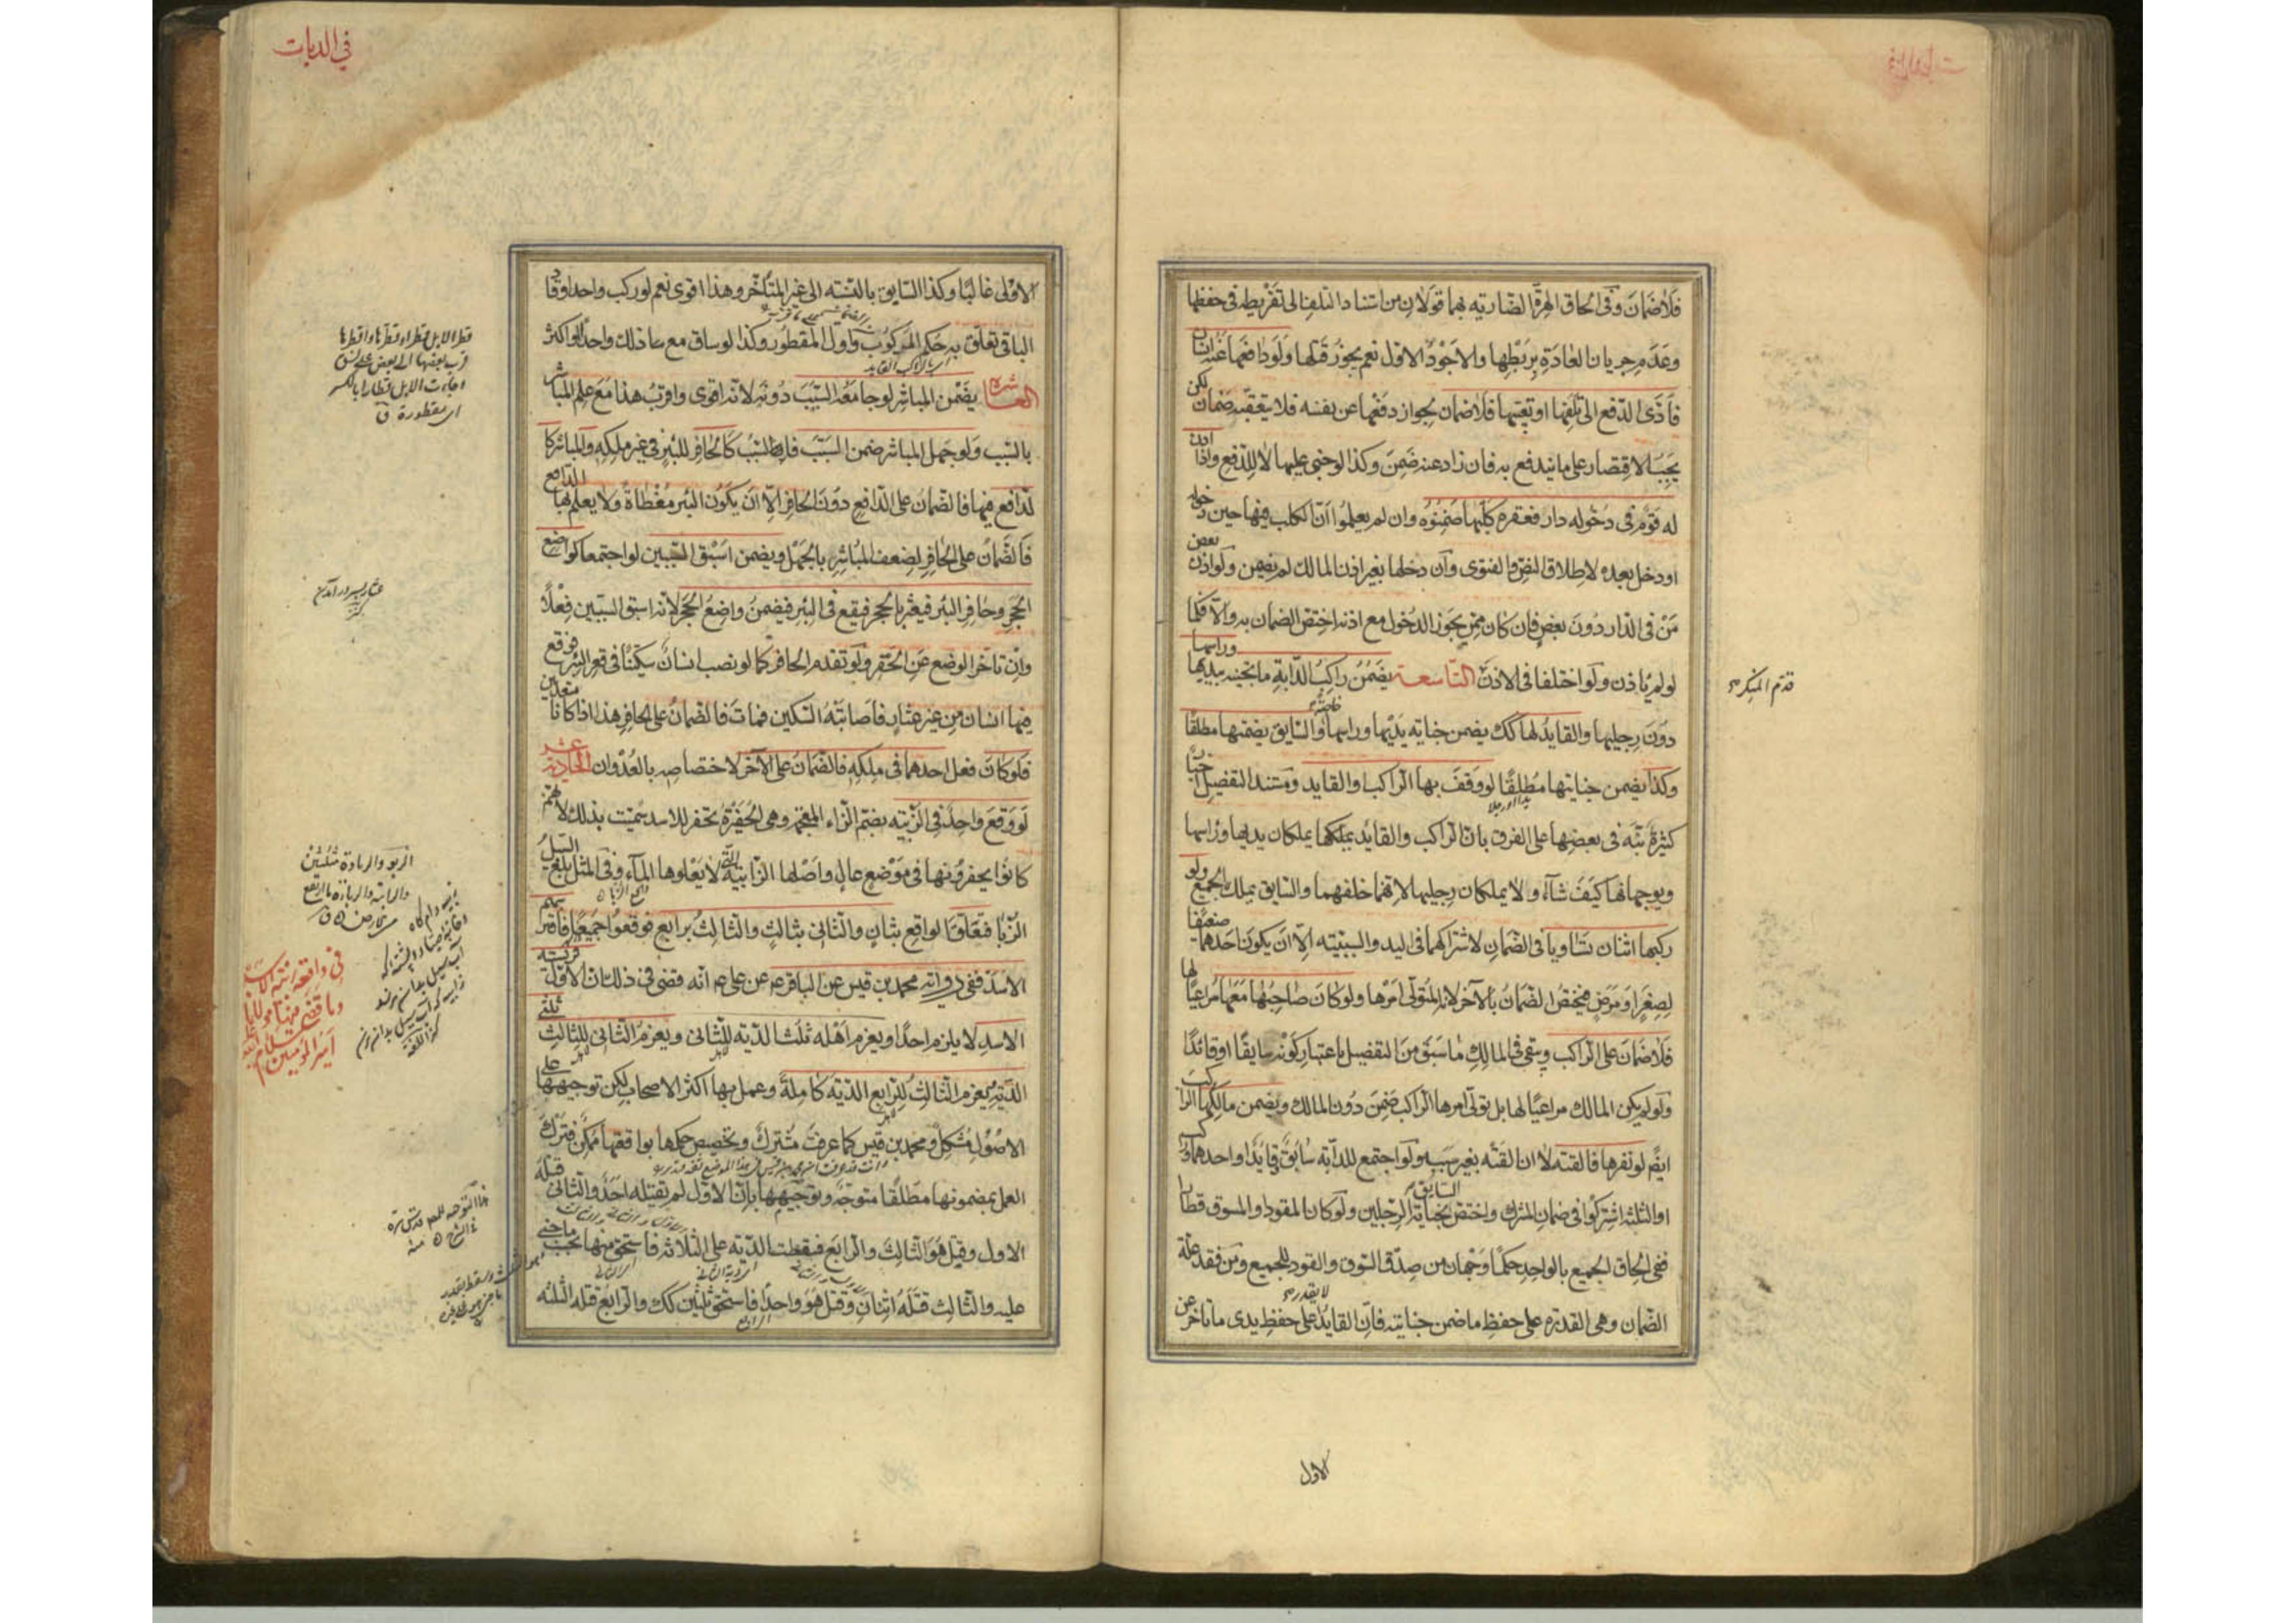 فلا ضمان وفى الحاق الهرة الضارية بهما قولان من استناد التلف الى تفريطه فى حفظها
وعدم جريان العادة بربطها والاجود الاول نعم يجوز قتلها ولو دافعها عنه انسان
فادى الدفع الى تلفها او تعيبها فلا ضمان لجواز دفعها عن نفسه فلا يتعقبه ضمان لكن
يجب الاقتصار على ما يندفع به فان زاد عنه ضمن وكذا لو جنى عليها لا للدفع واذا اذن
له قوم فى دخوله دار فعقره كلبها ضمنوه وان لم يعلموا ان الكلب فيها حين دخوله
او دخل بعده لاطلاق النص والفتوى وان دخلها بغير اذن المالك لم يضمن ولو اذن بعض
من فى الدار دون بعض فان كان ممن يجوز الدخول مع اذنه اختص الضمان به والا فكما
لو لم ياذن ولو اختلفا فى الاذن التاسعة يضمن راكب الدابة ما تجنيه بيديها وراسها
قدم المنكر
دون رجليها والقايد لها كك يضمن جناية يديها وراسها خاصة والسايق يضمنها مطلقا
وكذا يضمن جنايتها مطلقا لو وقف بها الراكب والقايد ومستند التفصيل اخبار
كثيرة نبه فى بعضها على الفرق بان الراكب والقايد يملكها يملكان يديها وراسها
يدا او رجلا
ويوجهانها كيف شاء ولا يملكان رجليها لانهما خلفهما والسايق يملك الجميع ولو
ركبها اثنان تساويا فى الضمان لاشتراكهما فى اليد والسببية الا ان يكون احدهما ضعيفا
لصغر او مرض فيختص الضمان بالآخر لانه المتولى امرها ولو كان صاحبها معها مراعيا لها
فلا ضمان على الراكب وبقى فى المالك ما سبق من التفصيل باعتبار كونه سايقا او قائدا
ولو لم يكن المالك مراعيا لها بل تولى امرها الراكب ضمن دون المالك ويضمن مالكها الراكب
ايضا لو نفرها فالقته لا ان القته بغير سببه ولو اجتمع للدابة سائق وقايد او احدهما وراكب
او الثلثة اشتركوا فى ضمان المشترك واختص السايق بجناية الرجلين ولو كان المقود او المسوق قطارا
ففى الحاق الجميع بالواحد حكما وجهان من صدق السوق والقود للجميع ومن فقد علة
الضمان وهى القدرة على حفظ ما ضمن جنايته فان القايد لا يقدر على حفظ يدى ما تاخر عن
الاول
فى الديات
الاول غالبا وكذا السايق بالنسبة الى غير المتاخر وهذا اقوى نعم لو ركب واحدا وقاد
الباقى تعلق به حكم المركوب واول المقطور وكذا لو ساق مع ما ذلك واحدا او اكثر
العاشرة يضمن المباشر لو جامعه السبب دونه لانه اقوى واقرب هذا مع علم المباشر
بالسبب ولو جهل المباشر ضمن السبب فالسبب كالحافر للبئر فى غير ملكه والمباشر كا
لدافع فيها فالضمان على الدافع دون الحافر الا ان يكون البئر مغطاة ولا يعلم بها الدافع
فالضمان على الحافر لضعف المباشر بالجهل ويضمن اسبق السببين لو اجتمعا كواضع
الحجر وحافر البئر فيعثر بالحجر فيقع فى البئر فيضمن واضع الحجر لانه اسبق السببين فعلا
وان تاخر الوضع عن الحفر ولو تقدم الحافر كما لو نصب انسان سكينا فى قعر البئر فوقع
فيها انسان من غير عثار فاصابته السكين فمات فالضمان على الحافر هذا اذا كانا متعديين
فلو كان فعل احدهما فى ملكه فالضمان على الآخر لاختصاصه بالعدوان الحادية عشر
لو وقع واحد فى الزبية بضم الزاء المعجمة وهى الحفيرة تحفر للاسد سميت بذلك لانهم
كانوا يحفرونها فى موضع عال واصلها الزابية التى لا يعلوها الماء وفى المثل بلغ السيل
الزبا فتعلق الواقع بثان والثانى بثالث والثالث برابع فوقعوا جميعا فافترسهم
الاسد ففى رواية محمد بن قيس عن الباقر عن على انه قضى فى ذلك ان الاول فريسة
الاسد لا يلزم احدا ويغرم اهله ثلث الدية للثانى ويغرم الثانى للثالث ثلثى
الدية ويغرم الثالث للرابع الدية كاملة وعمل بها اكثر الاصحاب لكن توجيهها على
الاصول مشكل ومحمد بن قيس كما عرفت مشترك وتخصيص حكمها بواقعها ممكن فترك
العمل بمضمونها مطلقا متوجه وتوجيهها بان الاول لم يقتله احد والثانى قتله
الاول وقتل هو الثالث والرابع فقسطت الدية على الثلاثة فاستحق منها بحسب ما جنى
عليه والثالث قتله اثنان وقتل هو واحدا فاستحق ثلثين كك والرابع قتله الثلثة